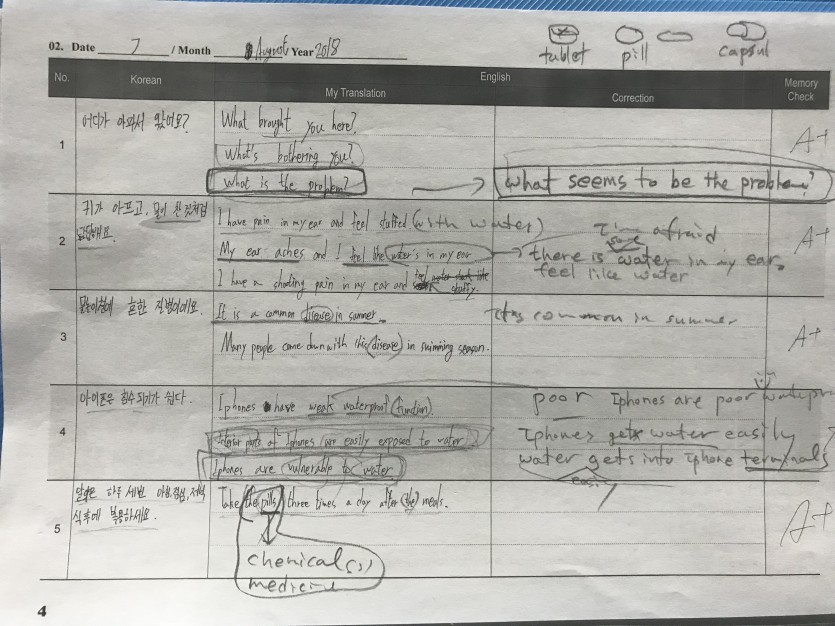 02. Date 7 / Month August Year 2018
tablet pill capsul
No. Korean English Memory Check
My Translation Correction
1
어디가 아파서 왔어요?
What brought you here?
What's bothering you?
What is the problem?
What seems to be the problem?
A+
2
귀가 아프고, 물이 찬 것처럼
답답해요.
I have pain in my ear and feel stuffed (with water)
My ear aches and I feel like water's in my ear
I have a shooting pain in my ear and stuffy.
I'm afraid
there is some water in my ear,
feel like water
A+
3
물놀이철에 흔한 질병이에요.
It is a common disease in summer.
Many people come down with this (disease) in swimming season.
It's common in summer
A+
4
아이폰은 침수되기가 쉽다.
Iphones have weak waterproof (function).
Interior parts of Iphones (are easily exposed to water)
Iphones are vulnerable to water
poor Iphones are poor
Iphones gets water easily
water gets into iphone terminals
easily
5
알약은 하루 세번 아침, 점심, 저녁
식후에 복용하세요.
Take the pills three times a day after (the) meals.
chemical(s)
medicine
A+
4